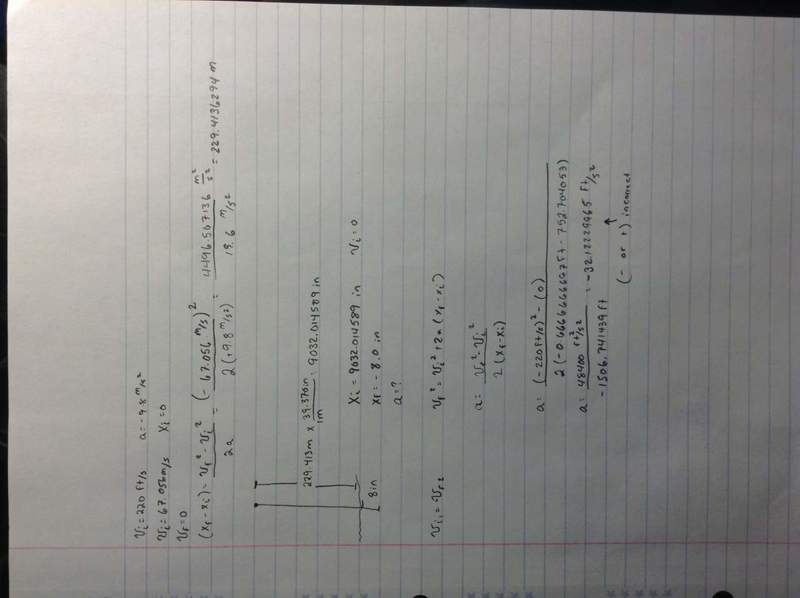 vi = 220 ft/s   a = -9.8 m/s²
vi = 67.056 m/s   xi = 0
vf = 0
(xf - xi) = (vf² - vi²) / 2a = (-67.056 m/s)² / 2(+9.8 m/s²) = 4496.507136 m²/s² / 19.6 m/s² = 229.4136294 m
229.413m x 39.370in / 1m = 9032.014589 in
8in
xi = 9032.014589 in   vi = 0
xf = -8.0 in
a = ?
vi1 = -vf2   vf² = vi² + 2a (xf - xi)
a = (vf² - vi²) / 2 (xf - xi)
a = ((-220 ft/s)² - (0)) / 2(-0.6666666667 ft - 752.704053)
a = 48400 ft²/s² / -1506.741439 ft = -32.12229965 ft/s²
(- or +) incorrect